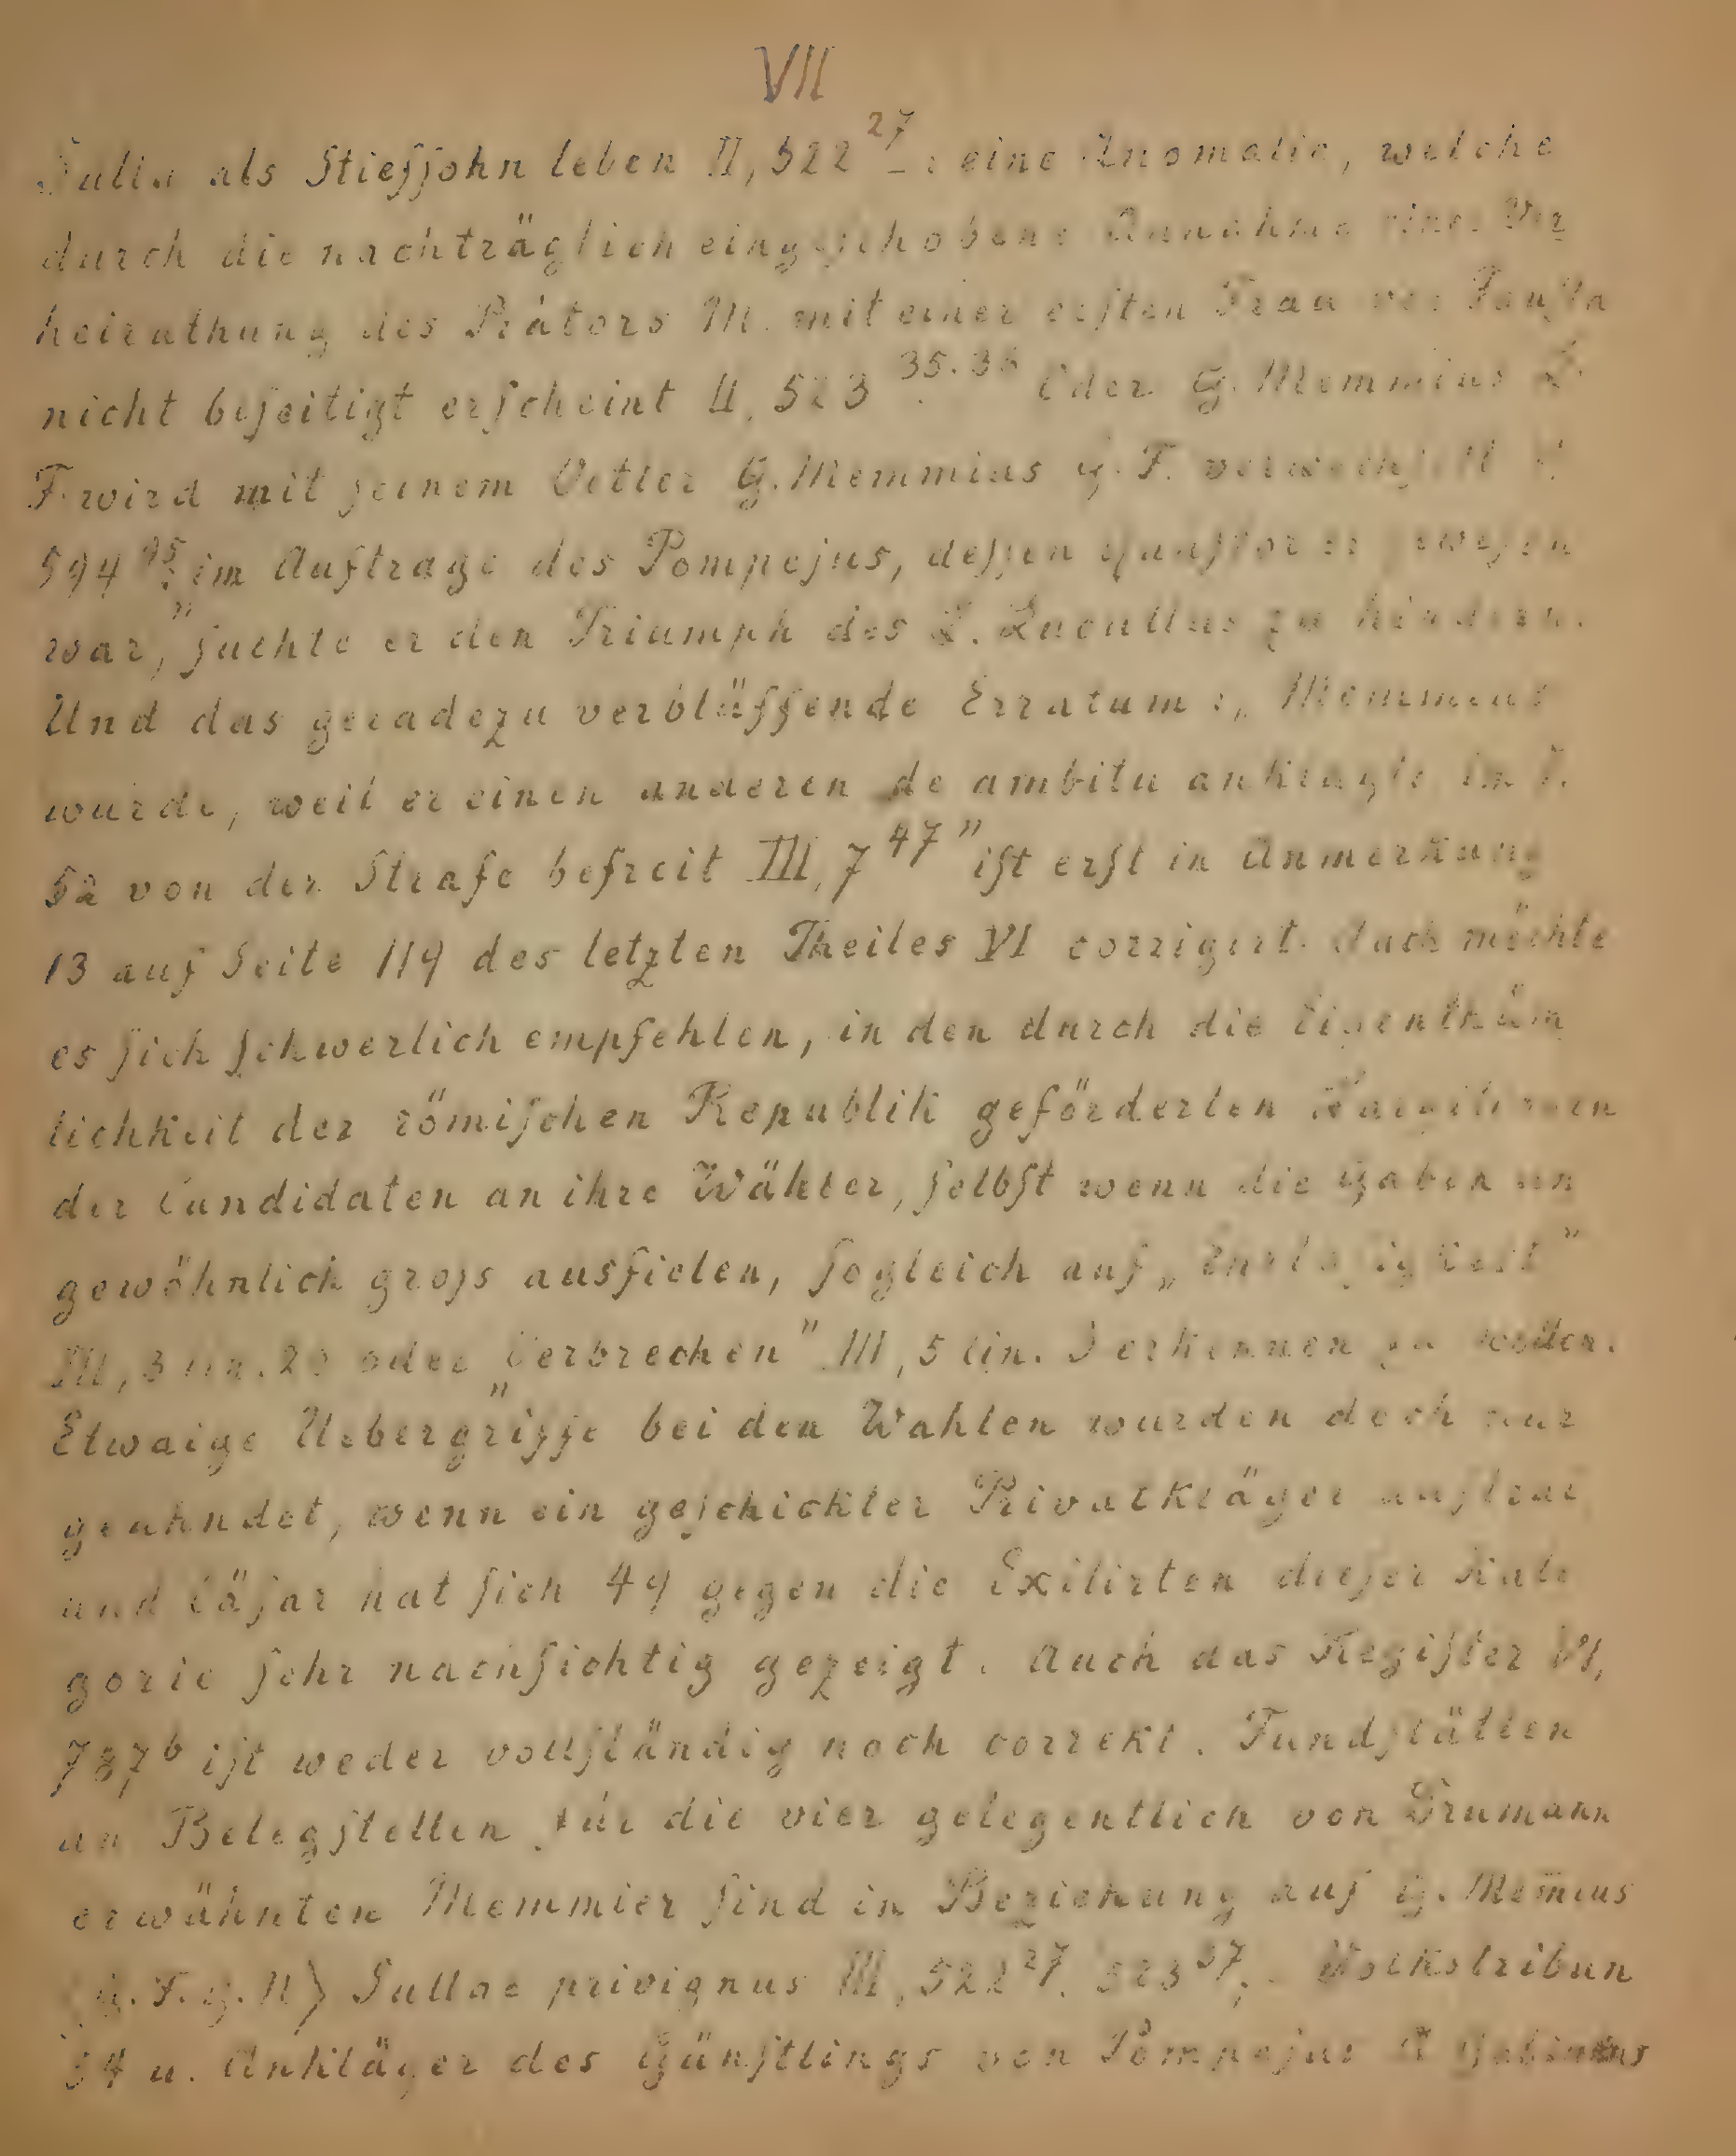 VII
Sulla als Stiefſohn leben II, 522 27 : eine Anomalie, welche
durch die nachträglich eingeſchobene Annahme einer Ver
heirathung des Prätors M. mit einer erſten Frau vor Fauſta
nicht beſeitigt erſcheint II, 523 35.36 Oder G. Memmius L.
F. wird mit ſeinem Vetter G. Memmius G. F. verwechſelt
594 95: „im Auftrage des Pompejus, deſſen Quäſtor er geweſen
war, ſuchte er den Triumph des L. Lucullus zu hindern.
Und das geradezu verblüffende Erratum: „Memmius
wurde, weil er einen anderen de ambitu anklagte im J.
52 von der Strafe befreit III, 7 47" iſt erſt in Anmerkung
13 auf Seite 119 des letzten Theiles VI corrigirt. Auch möchte
es ſich ſchwerlich empfehlen, in den durch die Eigenthüm
lichkeit der römiſchen Republik geförderten
der Candidaten an ihre Wähler, ſelbſt wenn die Gaben un
gewöhnlich groſs ausfielen, ſogleich auf „Ehrloſigkeit"
III, 3 lin. 20 oder „Verbrechen" III, 5 lin. erkennen zu wollen.
Etwaige Uebergriffe bei den Wahlen wurden doch nur
geahndet, wenn ein geſchickter Privatkläger auftrat
und Cäſar hat ſich 49 gegen die Exilirten dieſer Kate
gorie ſehr nachſichtig gezeigt. Auch das Regiſter VI,
737 b iſt weder vollſtändig noch correkt. Fundſtätten
an Belegſtellen für die vier gelegentlich von Drumann
erwähnten Memmier ſind in Beziehung auf G. Mem̄ius
G. F. G. N) Sullae privignus III, 522 27. 523 37; Volkstribun
54 u. Ankläger des Günſtlings von Pompejus A Gabinius